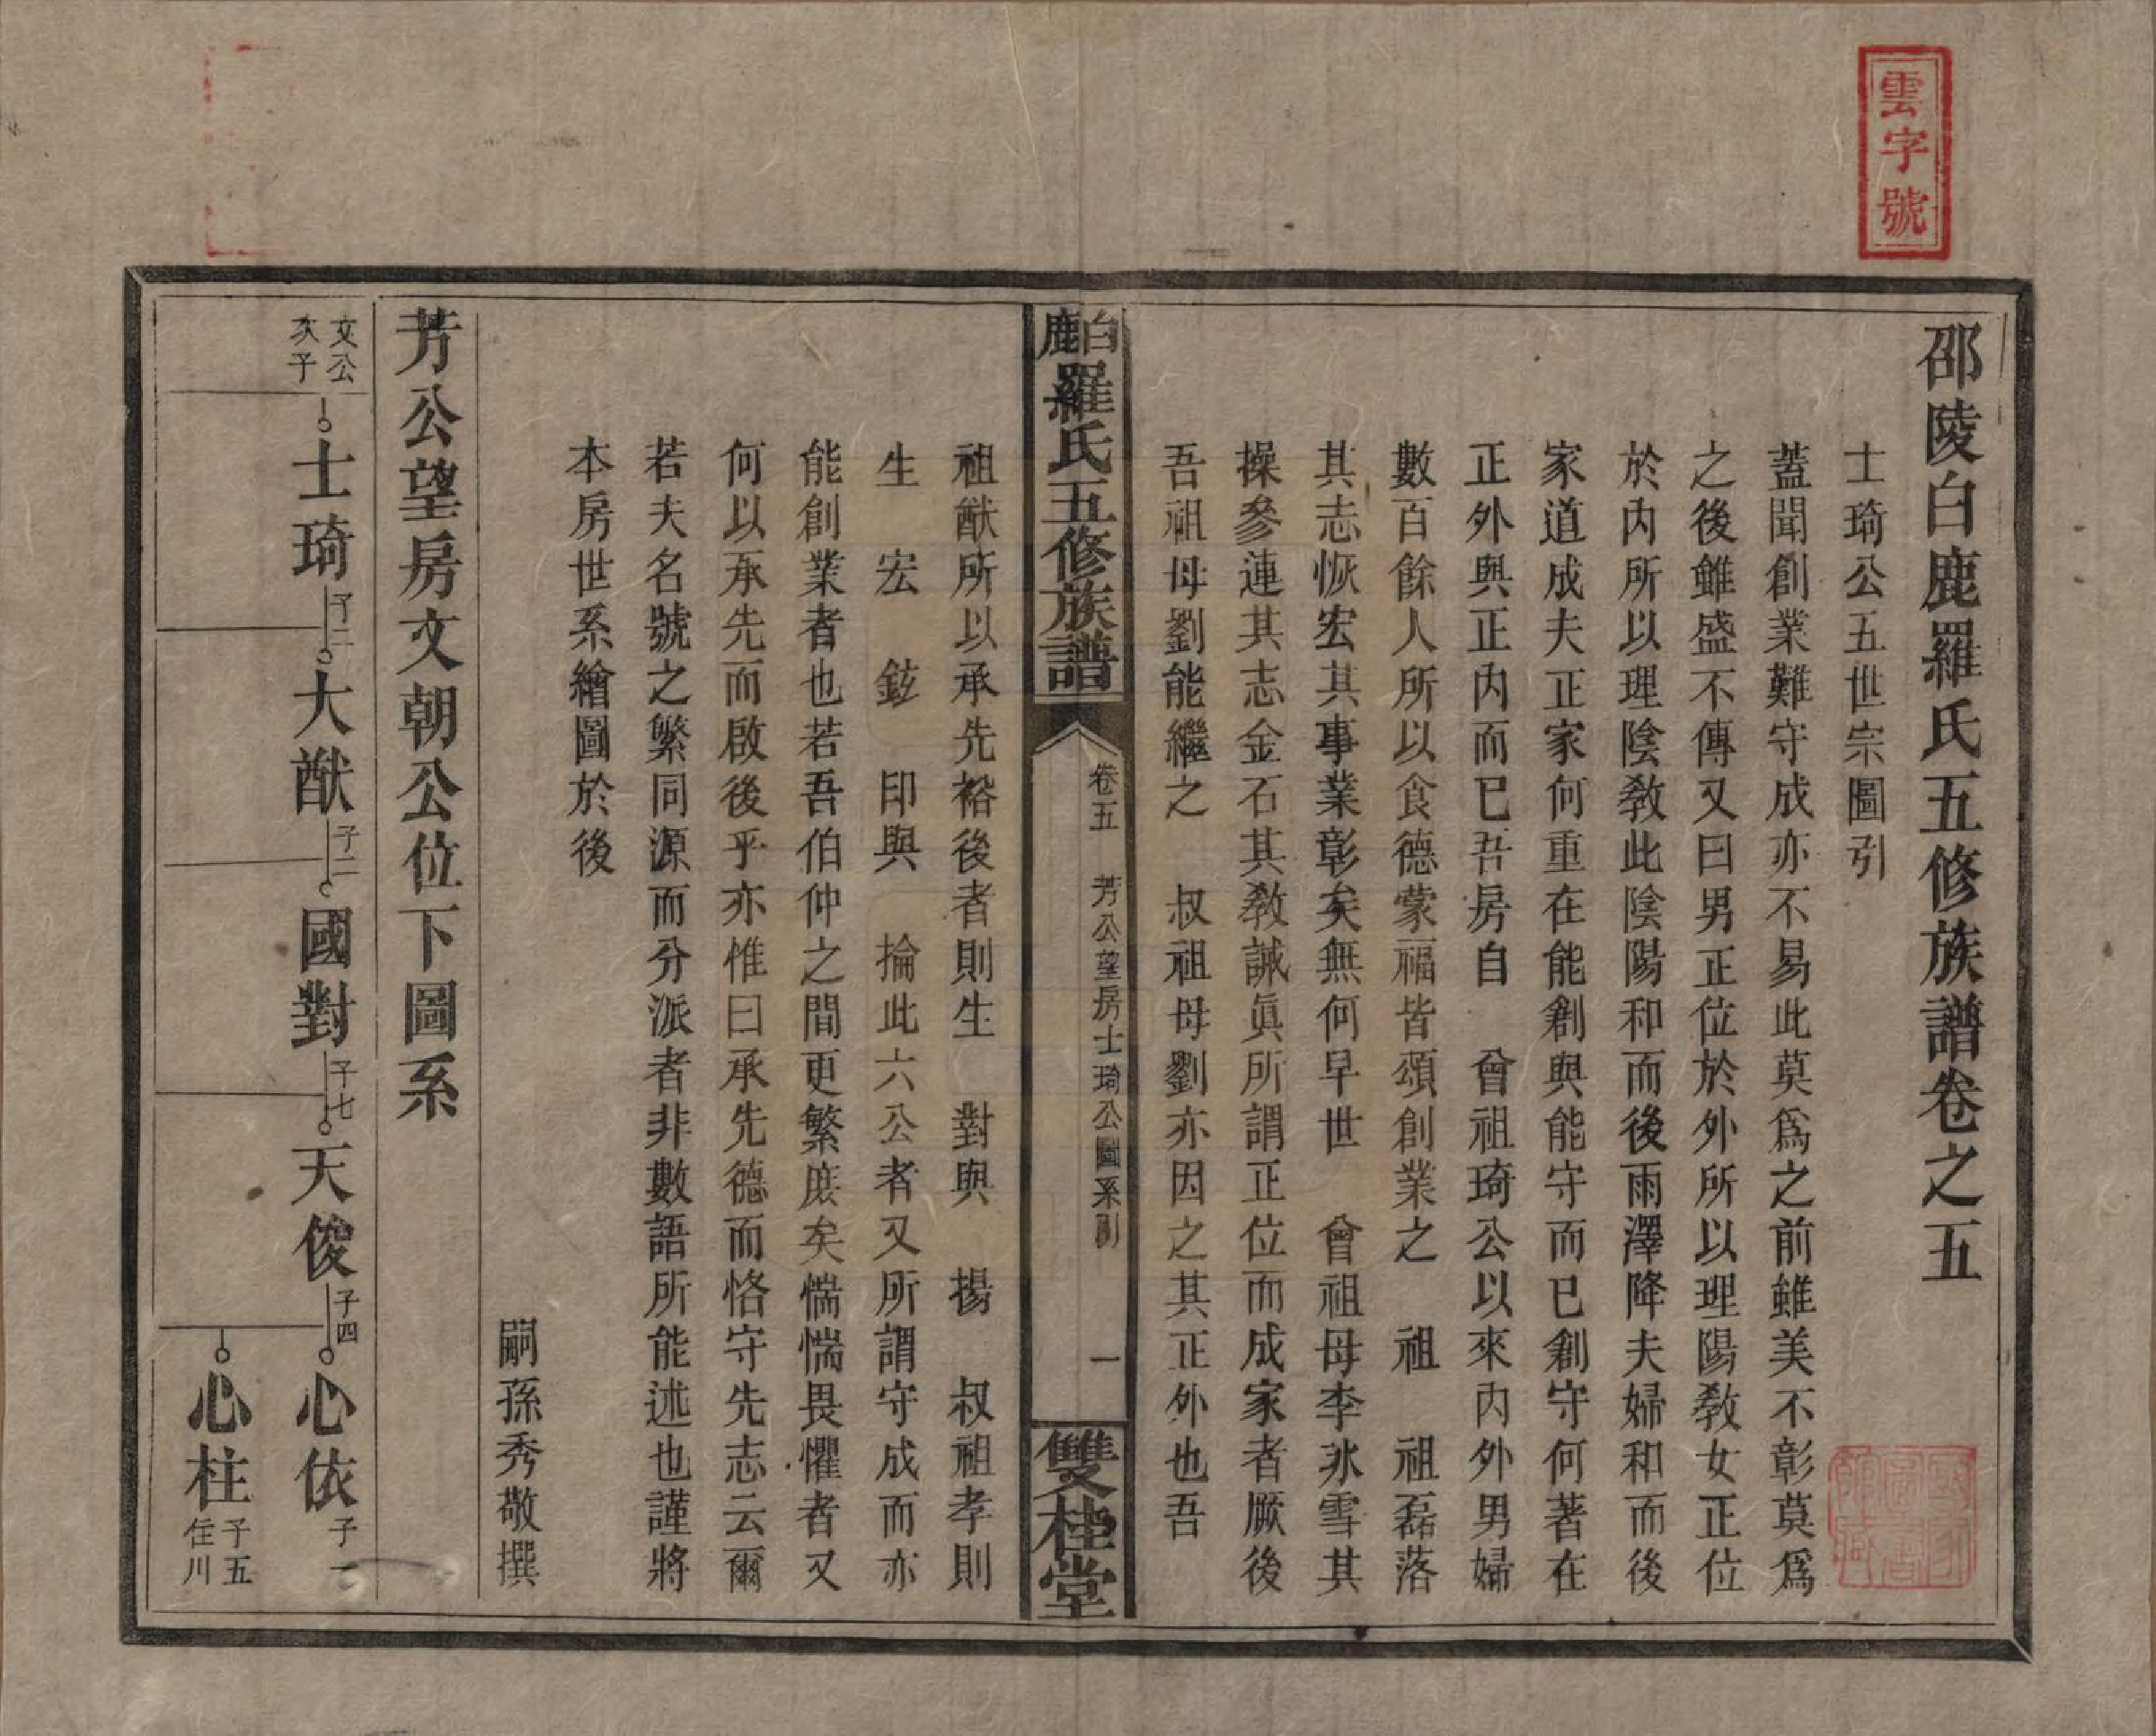 雲字號
邵陵白鹿羅氏五修族譜卷之五
士琦公五世宗圖引
蓋聞創業難守成亦不易此莫爲之前雖美不彰莫爲
之後雖盛不傳又曰男正位於外所以理陽教女正位
於内所以理陰教此陰陽和而後雨澤降夫婦和而後
家道成夫正家何重在能創與能守而已創守何著在
正外與正内而已吾房自 曾祖琦公以來内外男婦
數百餘人所以食德蒙福皆頌創業之 祖 祖磊落
其志恢宏其事業彰矣無何早世 曾祖母李氷雪其
操參連其志金石其教誡眞所謂正位而成家者厥後
吾祖母劉能繼之 叔祖母劉亦因之其正外也吾
白鹿羅氏五修族譜
卷五 芳公望房士琦公圖系引
一
雙桂堂
祖猷所以承先裕後者則生 對與 揚 叔祖孝則
生 宏 鉉 印與 掄此六公者又所謂守成而亦
能創業者也若吾伯仲之間更繁庶矣惴惴畏懼者又
何以承先而啟後乎亦惟曰承先德而恪守先志云爾
若夫名號之繁同源而分派者非數語所能述也謹將
本房世系繪圖於後
嗣孫秀敬撰
芳公望房文朝公位下圖系
文公次子
士琦 子二
大猷 子二
國對 子七
天俊 子四
心依 子一
心柱 子五 住川